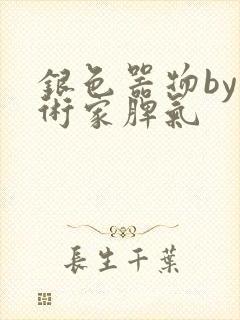 銀色器物by
術家脾氣
長生千葉